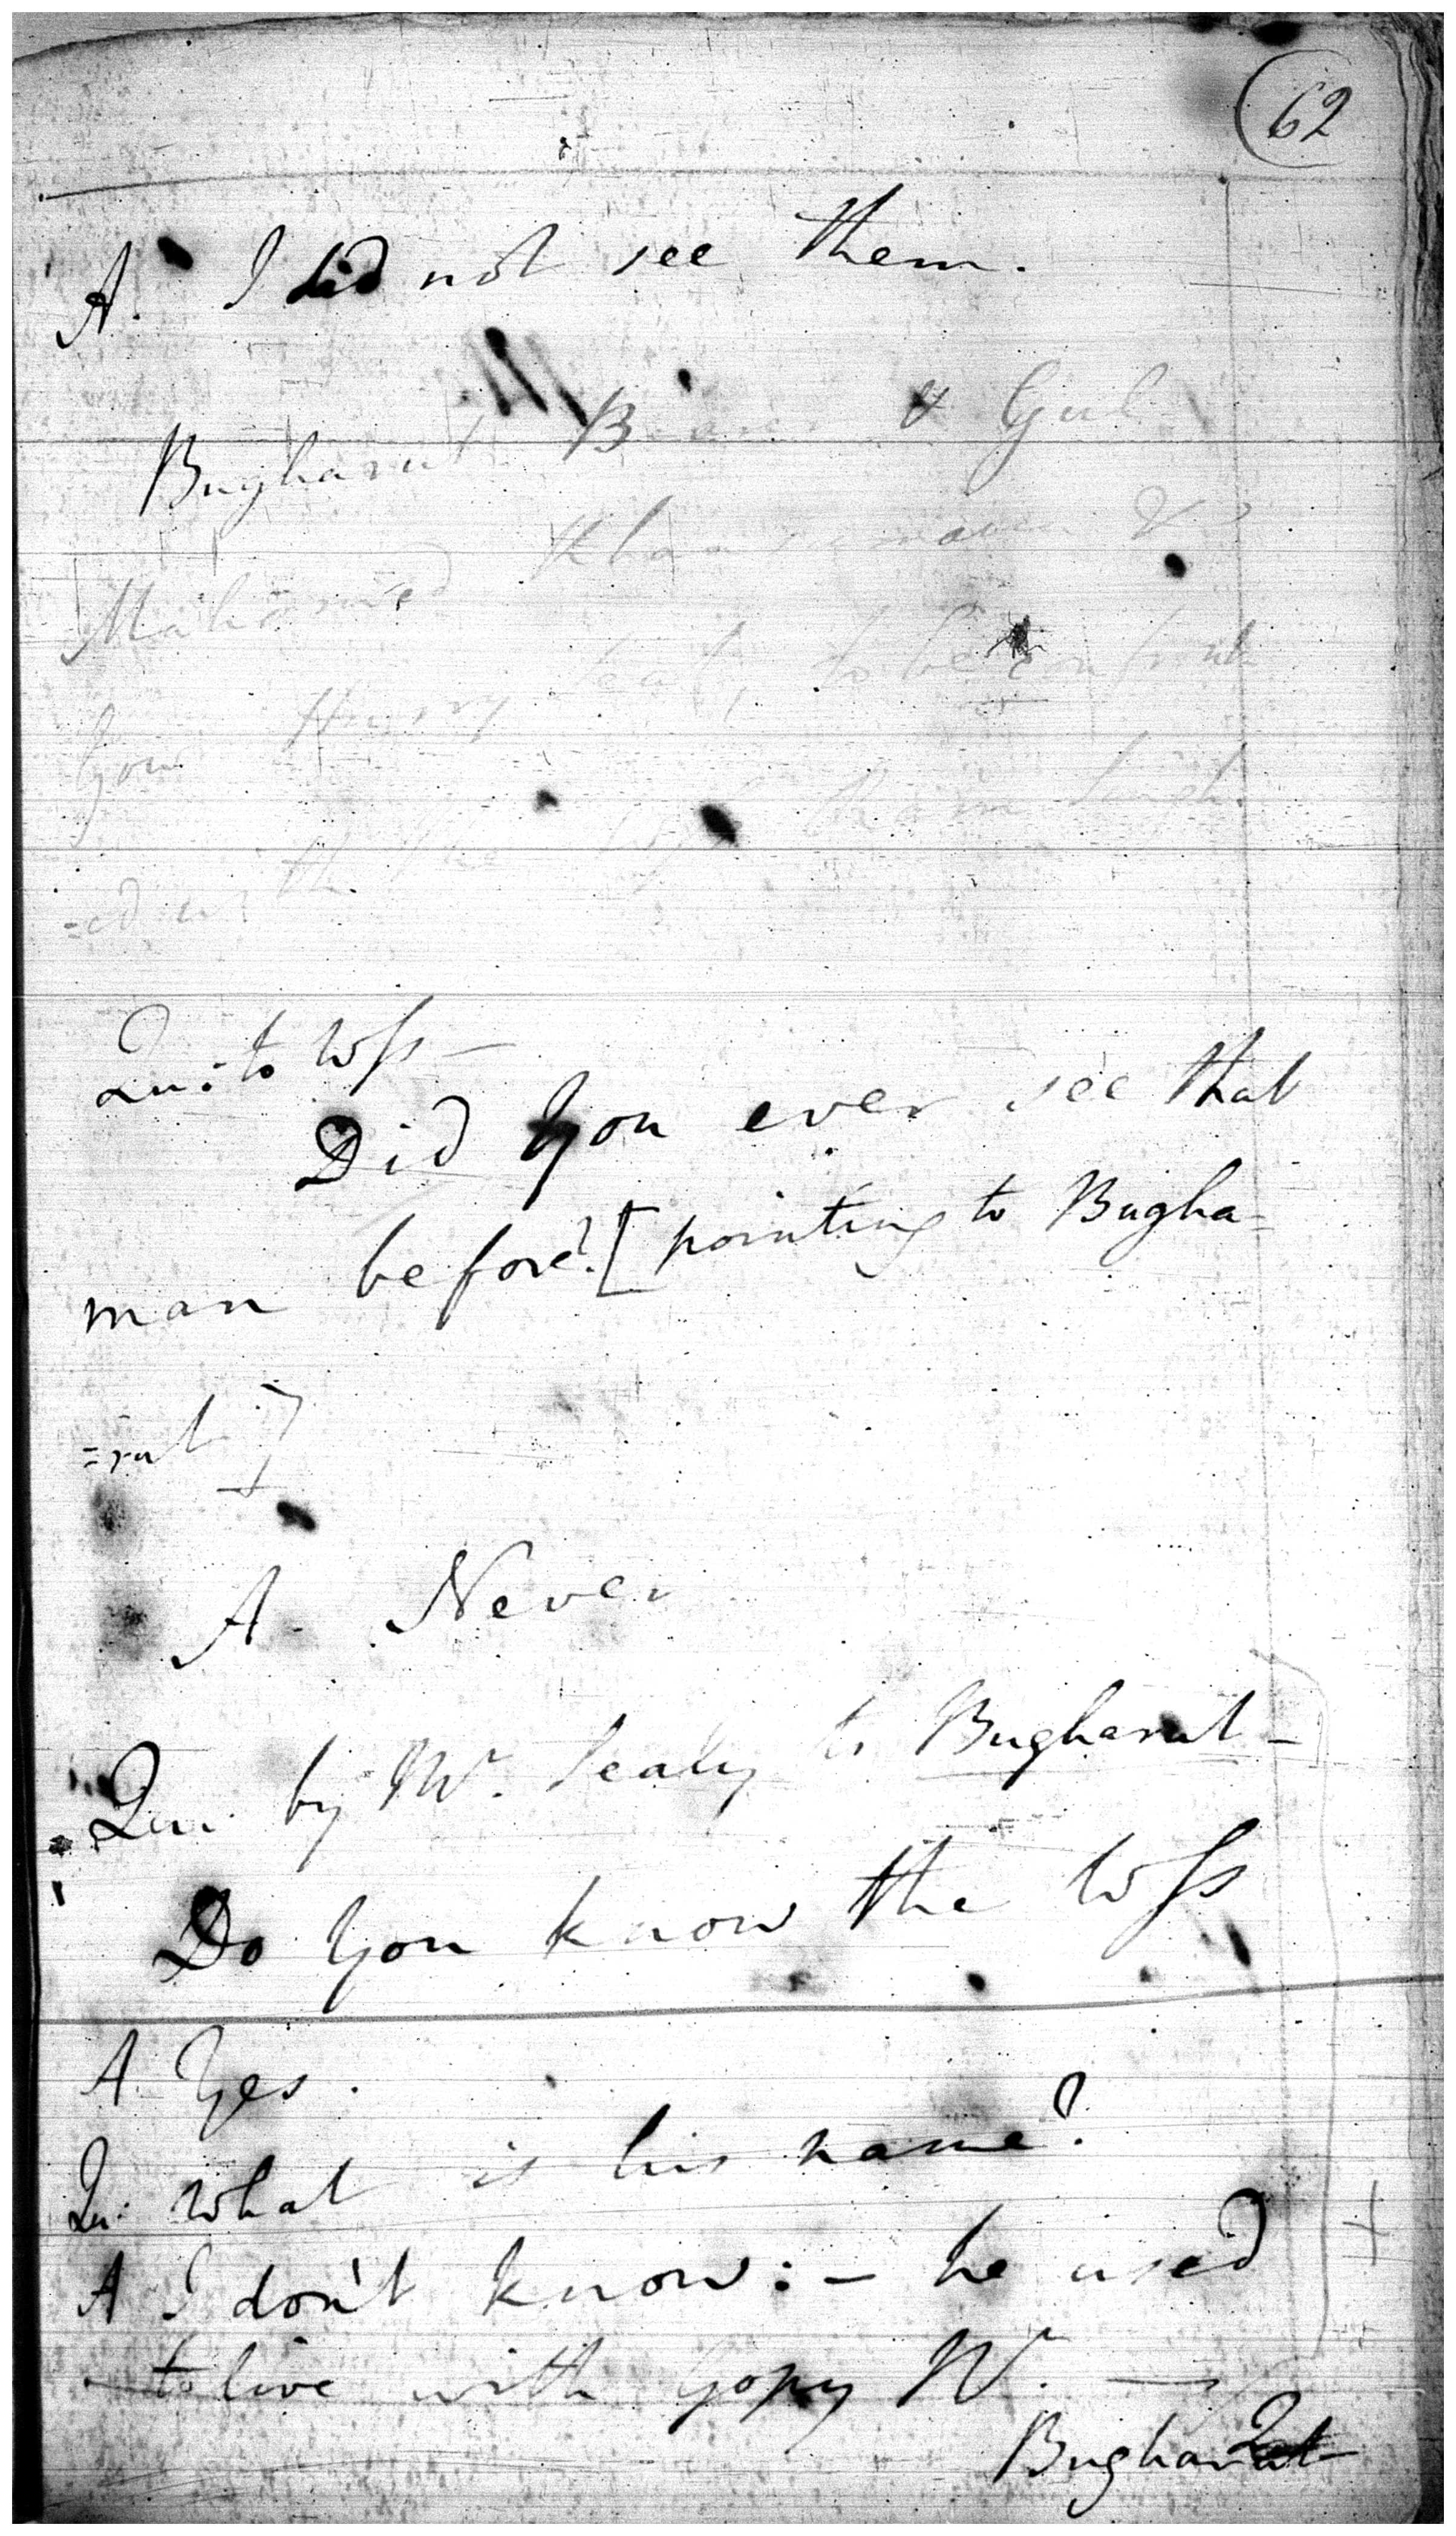 62
A. I did not see them.
Bugharut Bearer & Gul
Mahomed Khan
Gour Hurry to be confront
=ed with the
Qu: to Wss –
Did you ever see that
man before? [pointing to Bugha=
=rut]
A. Never
Qu. by Mr. Sealy to Bugharut –
Do you know the Wss
A. Yes.
Qu: What is his name?
A I don't know: – he used
to live with Gopy N. –
Bugharut